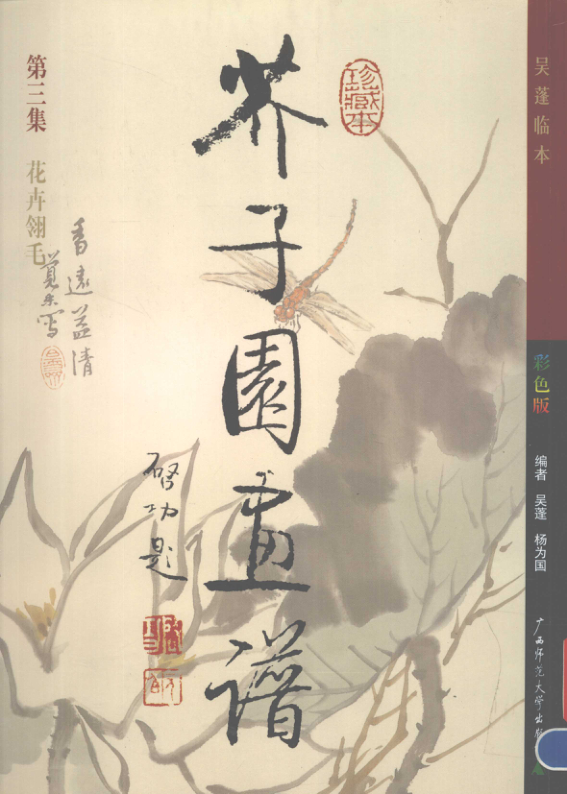 芥子園畫譜
珍藏本
啓功題
第三集 花卉翎毛
香遠益清
吴蓬临本
彩色版
编者 吴蓬 杨为国
广西师范大学出版